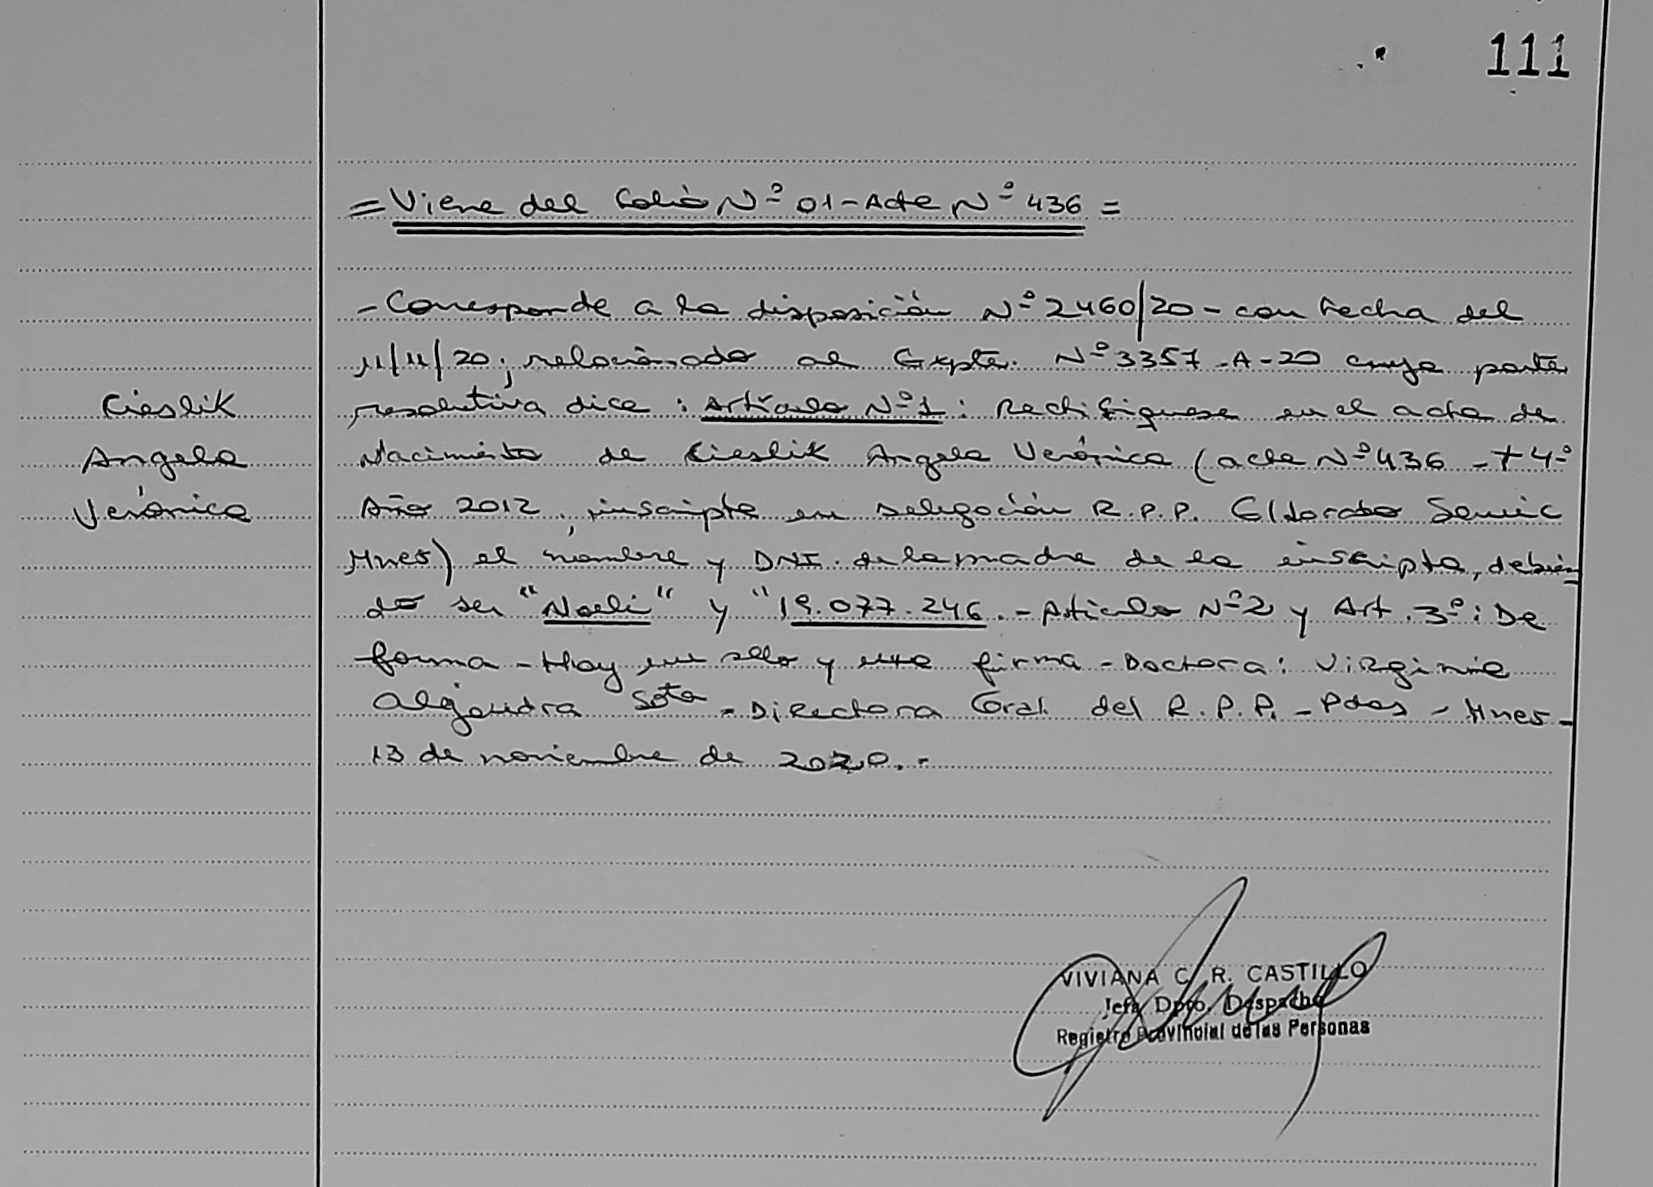 111
= Viene del Folio Nº 01 - Acta Nº 436 =
- Corresponde a la disposición Nº 2460/20 - con fecha del
11/11/20, relacionado al Expte. Nº 3357 - A - 20 cuya parte
resolutiva dice : Artículo Nº 1 : Rectifíquese en el acta de
Nacimiento de Cieslik Angela Verónica (acta Nº 436 - T 4º
Año 2012, inscripta en Delegación R.P.P. Eldorado
Mnes) el nombre y DNI. de la madre de la inscripta, debien
do ser "Noeli" y "19.077.246. - Artículo Nº 2 y Art. 3º : De
forma - Hay un sello y una firma - Doctora : Virginia
Alejandra Soto - Directora Gral. del R.P.P. - Pdas - Mnes -
13 de noviembre de 2020. -
Cieslik
Angela
Verónica
VIVIANA C. R. CASTILLO
Jefa Dpto. Despacho
Registro Provincial de las Personas